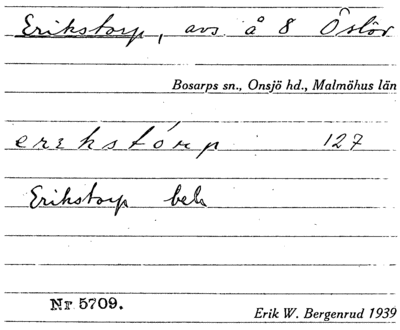 Erikstorp, avs. å 8 Östör
Bosarps sn., Onsjö hd., Malmöhus län
erekstórp 127
Erikstorp bel.
Nr 5709.
Erik W. Bergenrud 1939